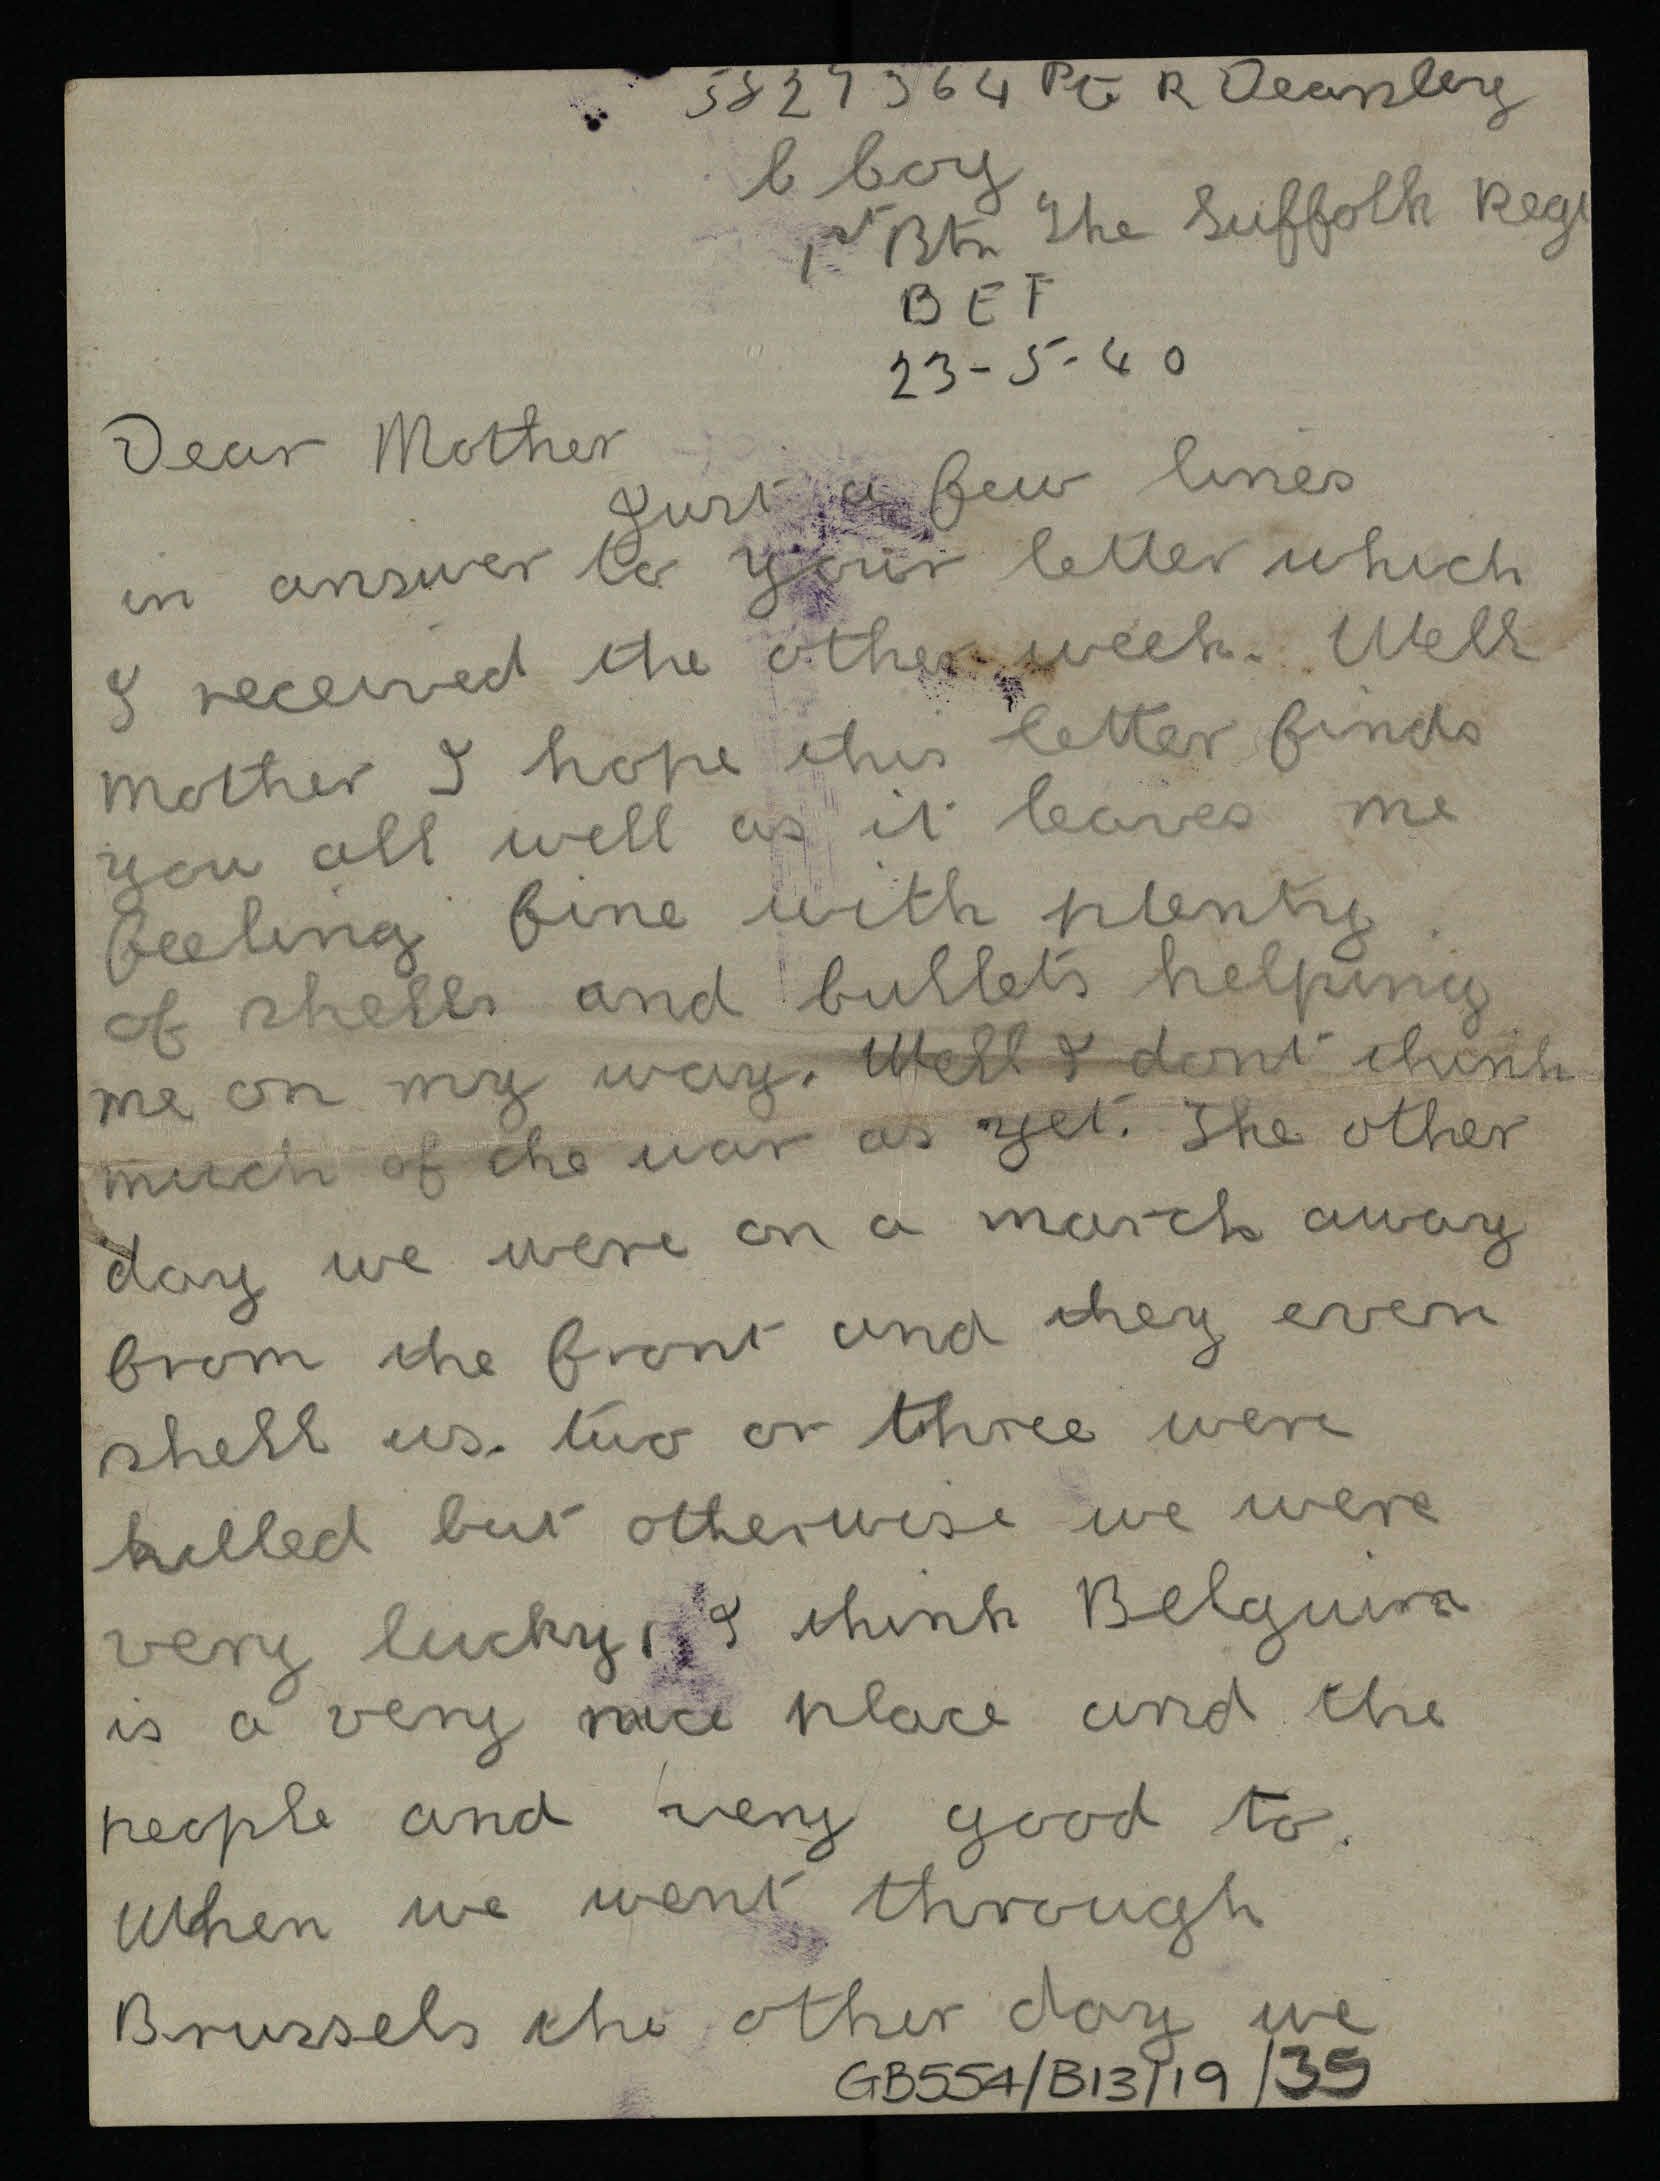 5827364 Pte R Deansley
C Coy
1st Btn The Suffolk Reg
B E F
23-5-40
Dear Mother
Just a few lines
in answer to your letter which
I received the other week. Well
Mother I hope this letter finds
you all well as it leaves me
feeling fine with plenty
of shells and bullets helping
me on my way. Well I dont think
much of the war as yet. The other
day we were on a march away
from the front and they even
shell us. two or three were
killed but otherwise we were
very lucky, I think Belguim
is a very nice place and the
people and very good to.
When we went through
Brussels the other day we
GB554/B13/19/35